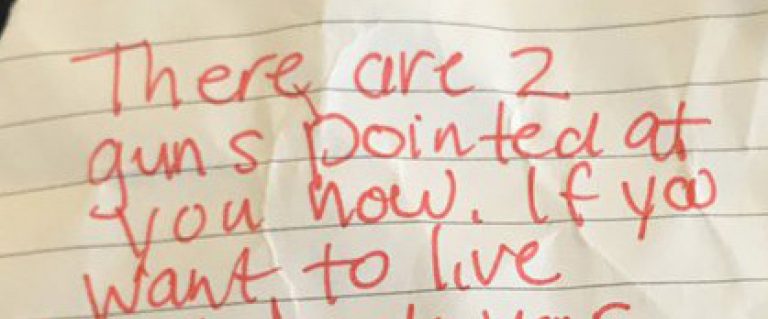 There are 2
guns pointed at
you now. If you
want to live